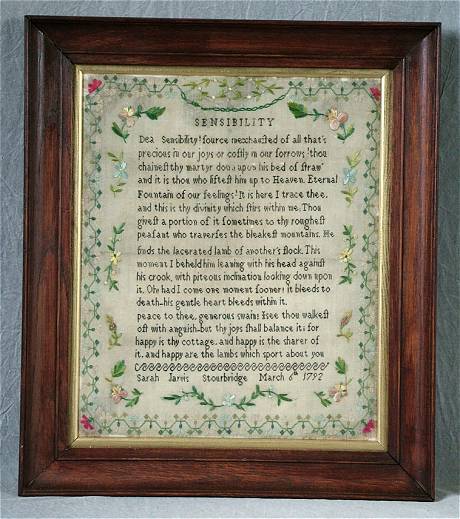 SENSIBILITY
Dea Sensibility! ſource inexhauſted of all that's
precious in our joys or coſtly in our ſorrows! thou
chaineſt thy martyr down upon his bed of ſtraw
and it is thou who lifteſt him up to Heaven. Eternal
Fountain of our feelings! It is here I trace thee,
and this is thy divinity which ſtirs within me. Thou
giveſt a portion of it ſometimes to thy rougheſt
peaſant who traverſes the bleakeſt mountains. He
finds the lacerated lamb of another's flock. This
moment I beheld him leaning with his head againſt
his crook, with piteous inclination looking down upon
it. Oh! had I come one moment ſooner! it bleeds to
death–his gentle heart bleeds within it.
peace to thee, generous swain! I ſee thou walkeſt
oft with anguiſh–but thy joys ſhall balance it: for
happy is thy cottage, and happy is the sharer of
it, and happy are the lambs which sport about you
Sarah Jarvis Stourbridge March 6th 1792